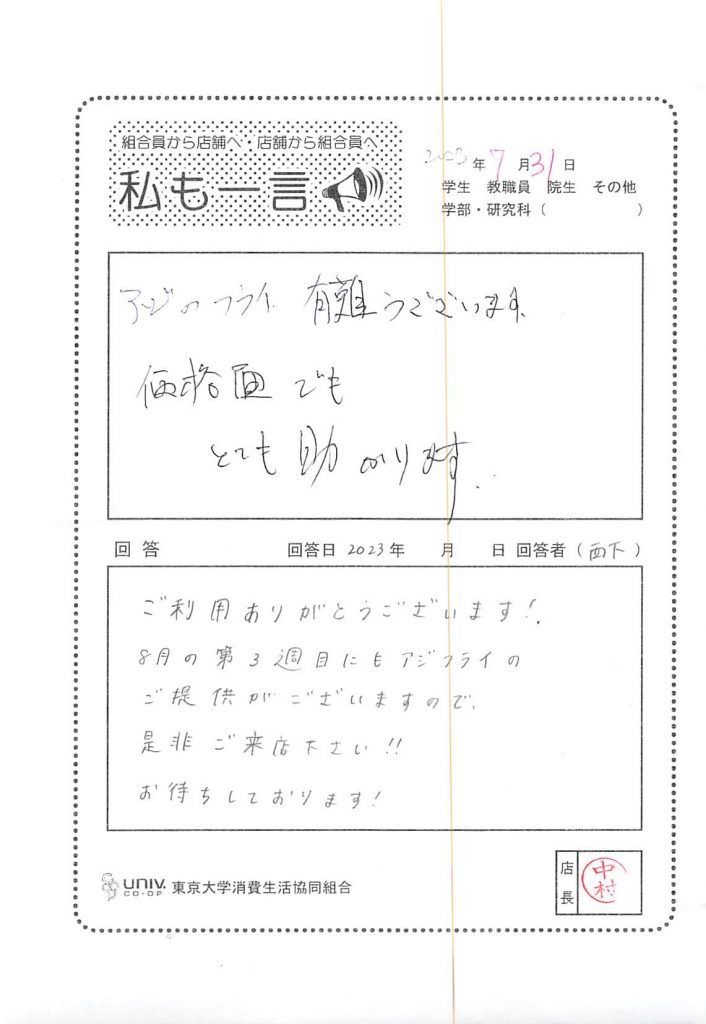 組合員から店舗へ・店舗から組合員へ
私も一言
2023年7月31日
学生 教職員 院生 その他
学部・研究科（ ）
アジのフライ 有難うございます。
価格面でも
とても助かります。
回答 回答日 2023年 月 日 回答者（西下）
ご利用ありがとうございます!
8月の第3週目にもアジフライの
ご提供がございますので、
是非ご来店下さい!!
お待ちしております!
UNIV. CO-OP 東京大学消費生活協同組合
店長 中村